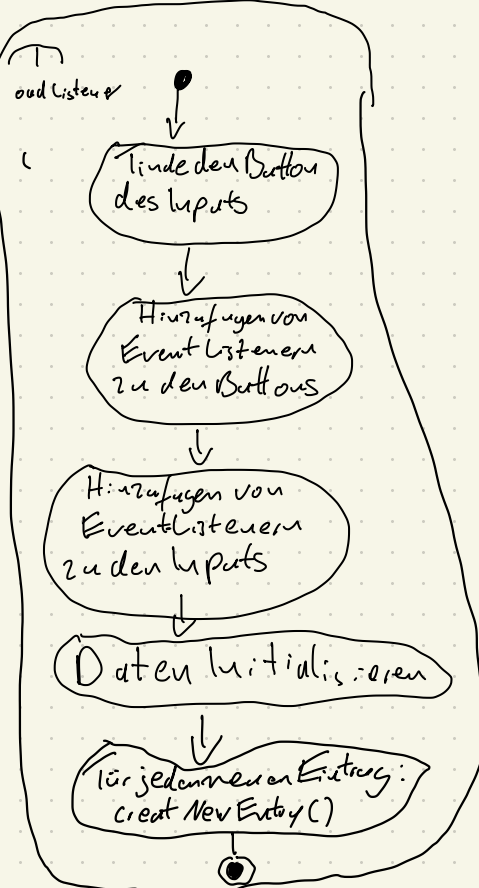 Finde den Button
des Inputs
Hinzufügen von
Event Listenern
zu den Buttons
Hinzufügen von
EventListenern
zu den Inputs
Daten Initialisieren
Für jeden neuen Eintrag:
creat New Entry()